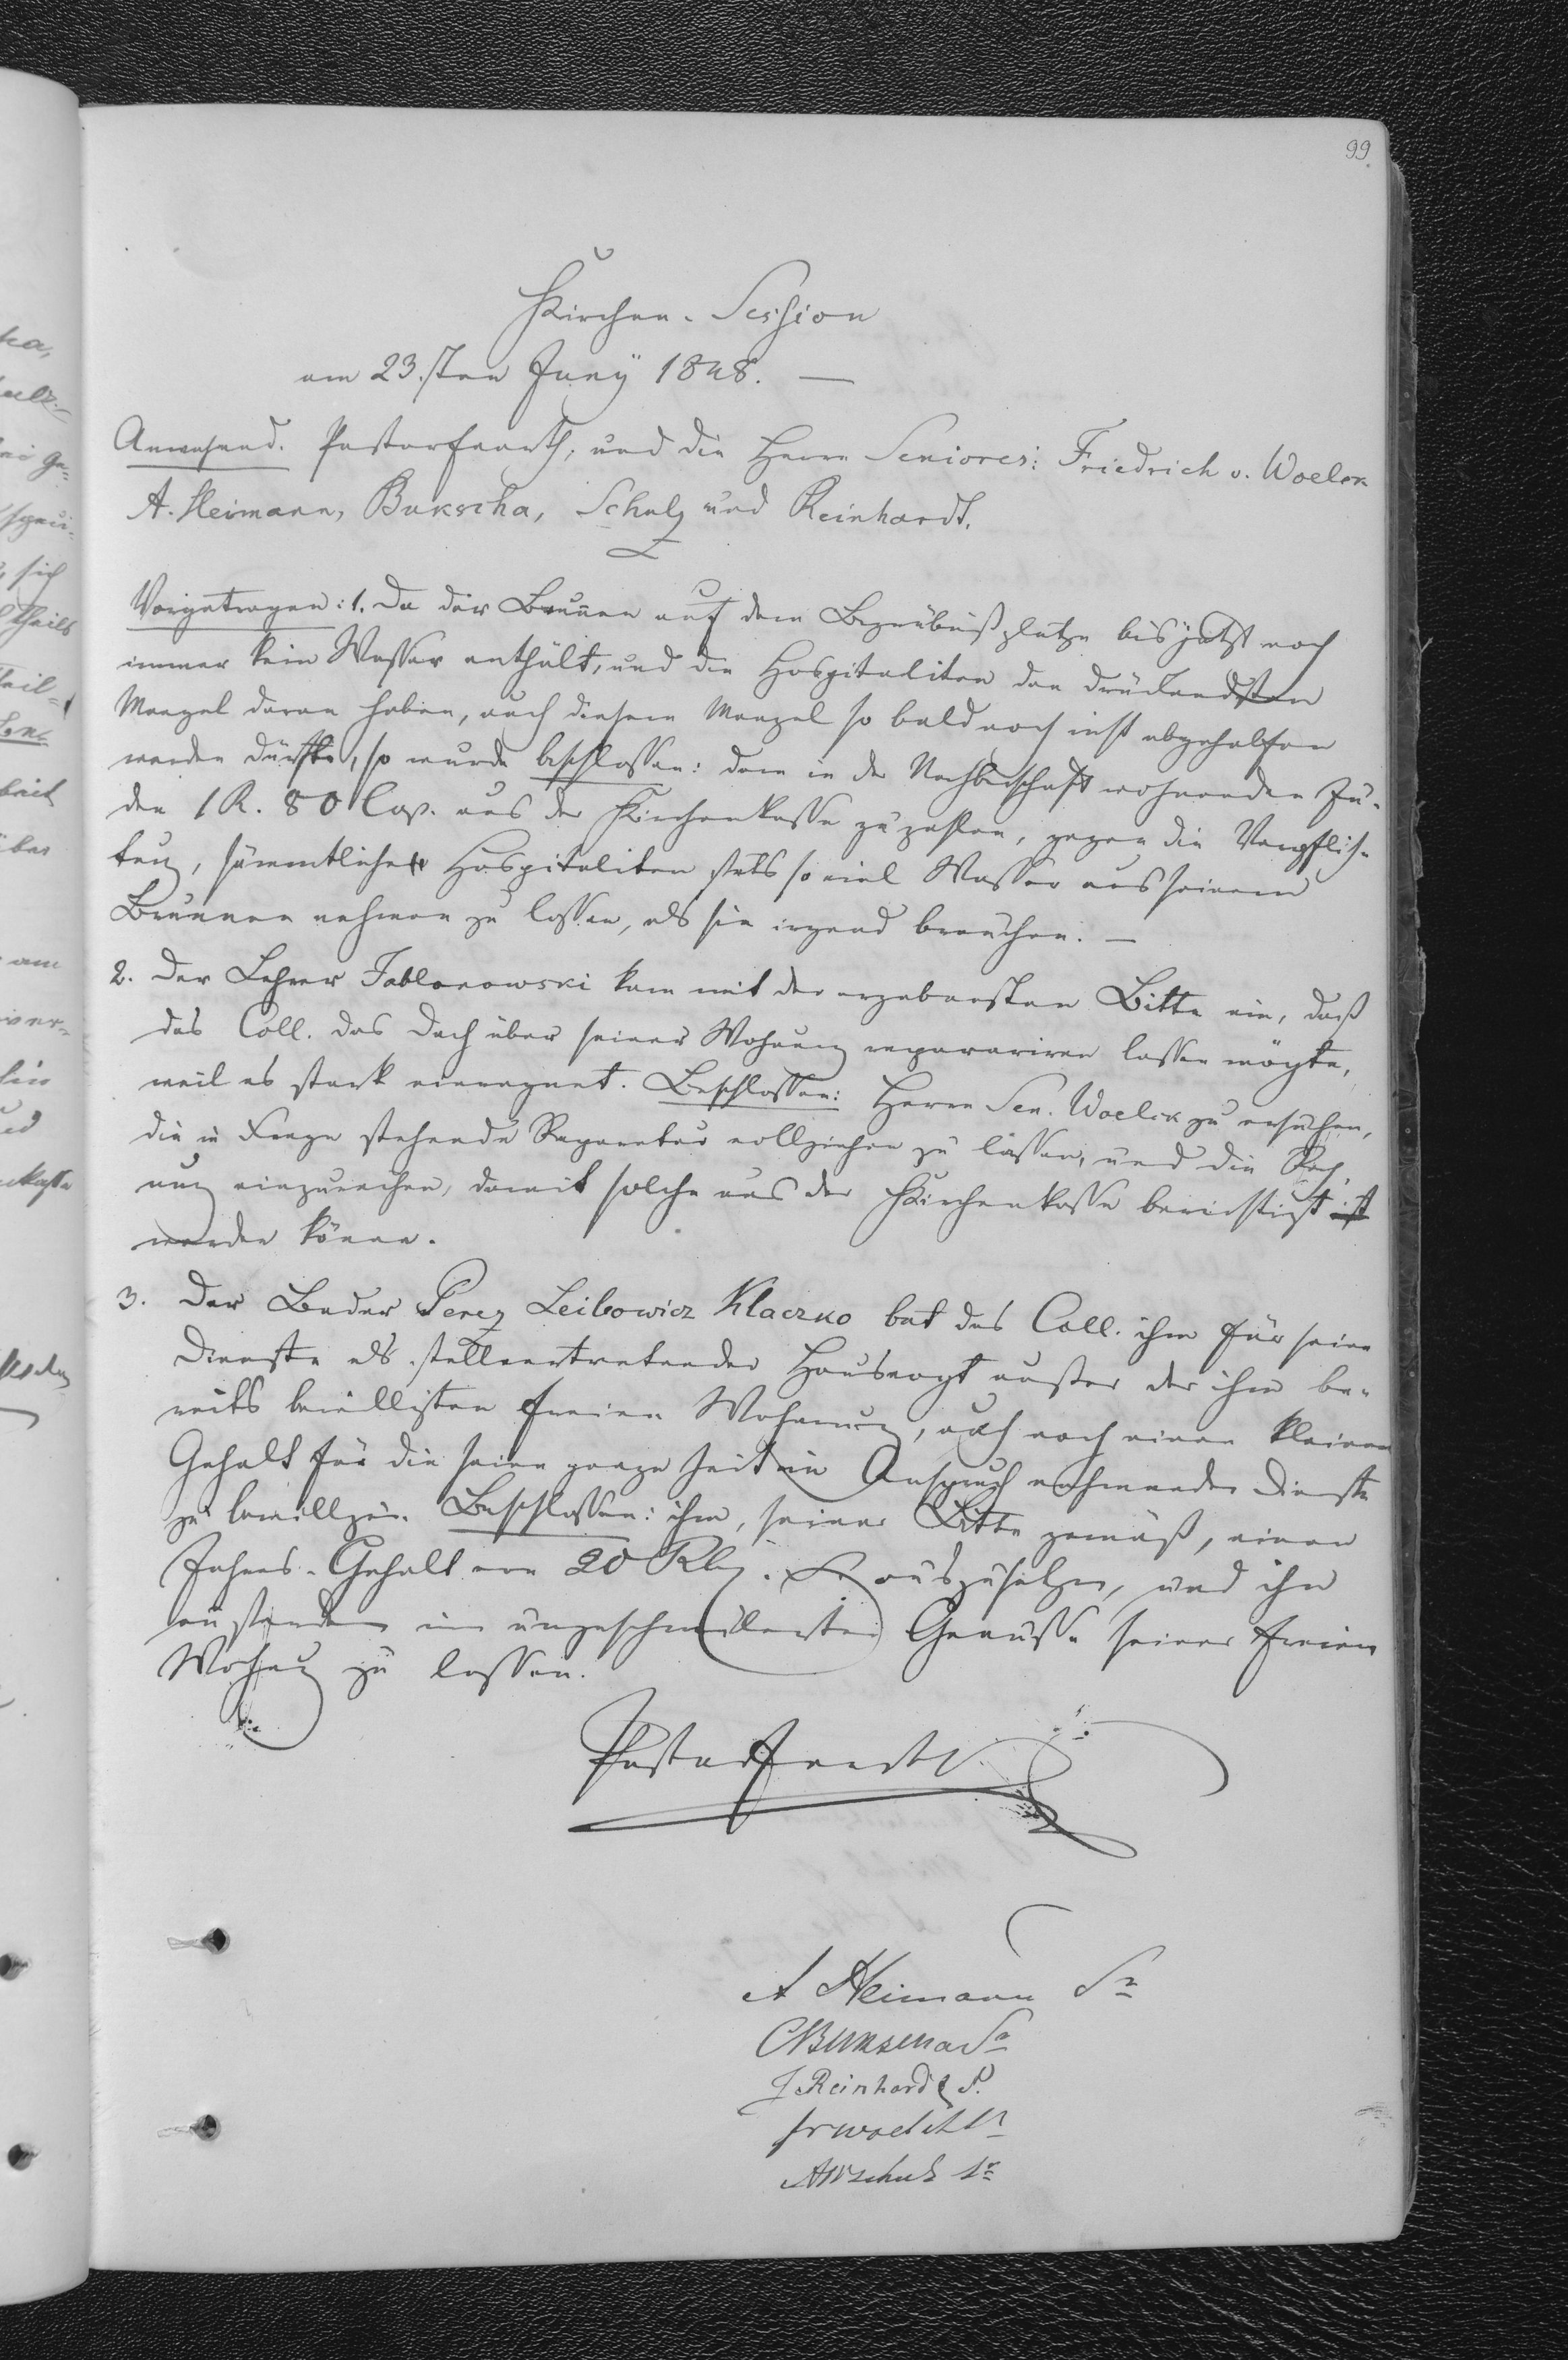 99.
Kirchen-Session
am 23.sten Juny 1848. —
Anwesend. Pastor und die Herrn Seniores: Friedrich v. Woelck
A. Heimann, Bukscha, Schulz und Reinhardt.
Vorgetragen: 1. Da der Brunnen auf dem Begräbnißplatze bis jetzt noch
immer kein Wasser enthält, und die Hospitaliten den drückendsten
Mangel daran haben, auch diesem Mangel so bald noch nicht abgeholfen
werden dürfte, so wurde beschlossen: dem in der Nachbarschaft wohnenden Ju-
den 1 R. 80 Cop. aus der Kirchenkasse zu zahlen, gegen die Verpflich-
tung, sämmtlichen Hospitaliten stets so viel Wasser aus seinem
Brunnen nehmen zu lassen, als sie irgend brauchen. —
2. Der Lehrer Jablonowski kam mit der ergebensten Bitte ein, daß
das Coll. das Dach über seiner Wohnung reparariren lassen mögte,
weil es stark einregnet. Beschlossen: Herrn Sen. Woelck zu ersuchen,
die in Frage stehende Reparatur vollziehen zu lassen, und die Rech-
nung einzureichen, damit solche aus der Kirchenkasse berichtigt ist
werden könne.
3. Der Bader Perez Leibowicz Klaczko bat das Coll. ihm für seine
Dienste als stellvertretender Hausvogt außer der ihm be-
reits bewilligten freien Wohnung, auch noch einen kleinen
Gehalt für die seine ganze Zeit in Anspruch nehmenden Dienste
zu bewilligen. Beschlossen: ihm, seiner Bitte gemäß, einen
Jahres-Gehalt von 20 Rbl. S. auszusetzen, und ihn
im ungeschmälerten Genusse seiner freien
Wohnung zu lassen.
Pastor
A Heimann Sr
CBukscha Sr
J Reinhardt S.
Fr Woelck Sr
AWSchulz Sr